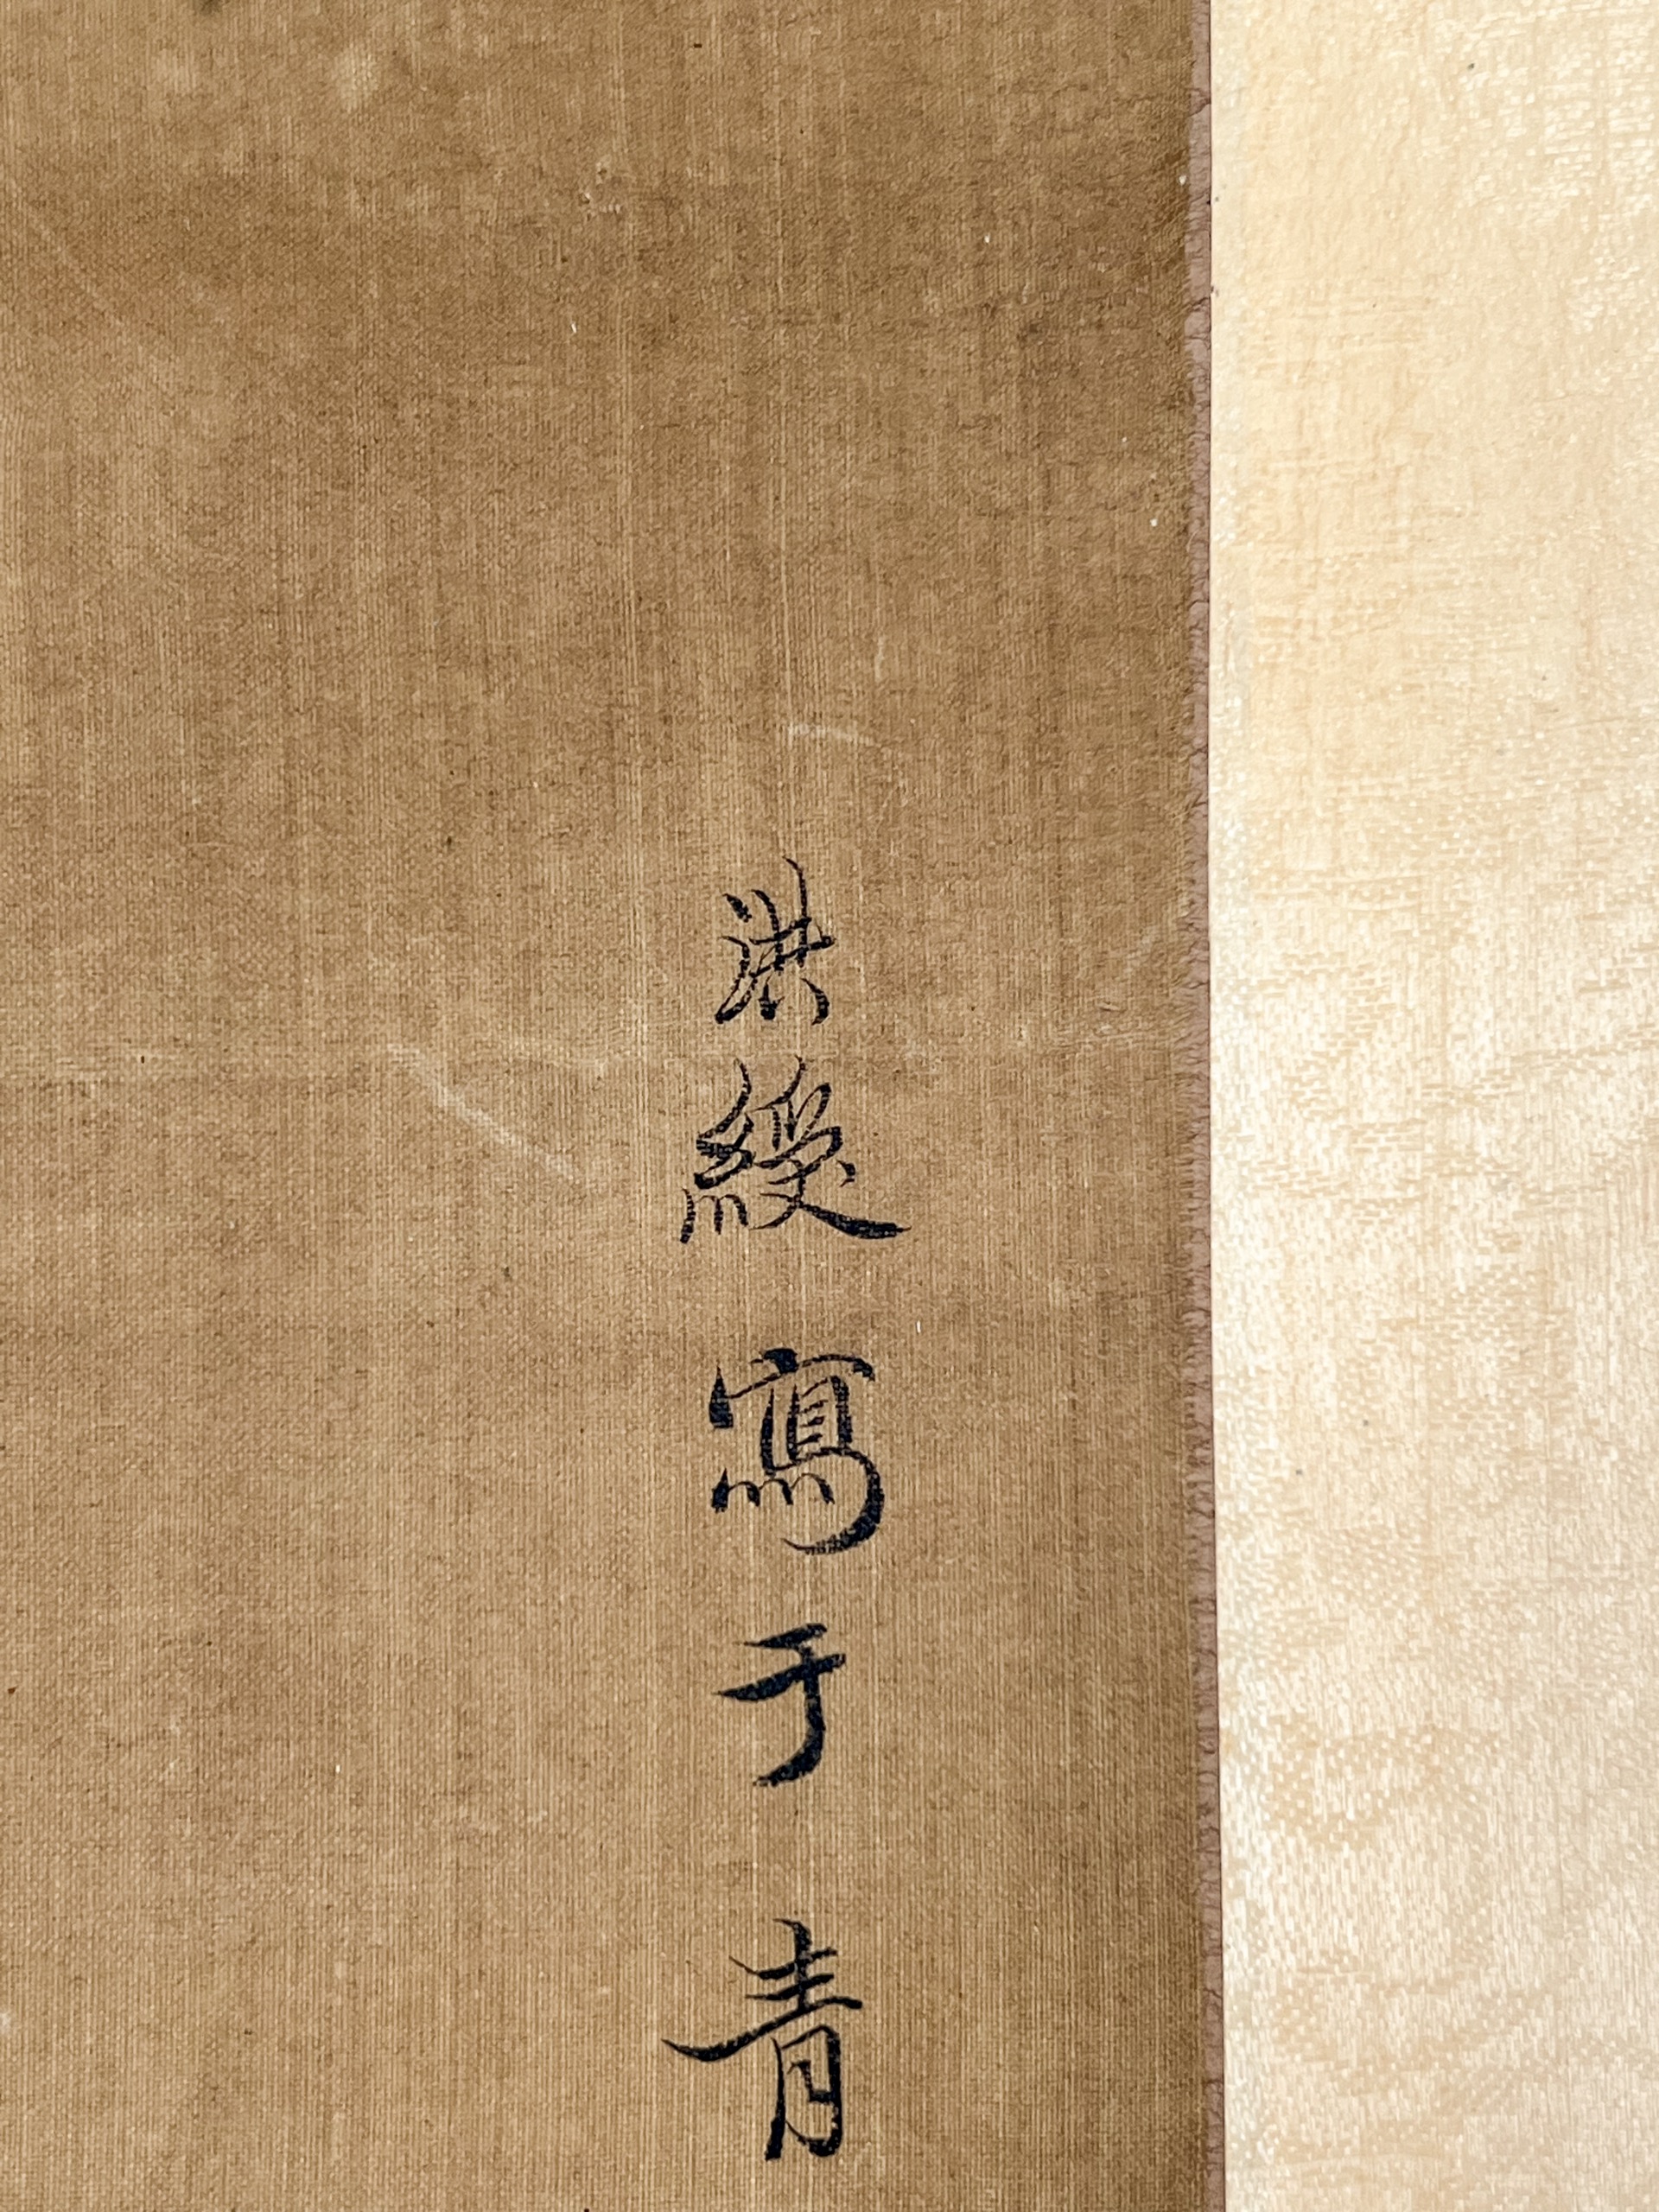 洪綬寫于青